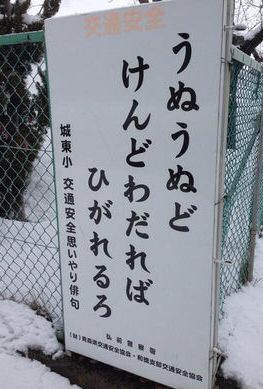 交通安全
うぬうぬど
けんどわだれば
ひがれるろ
城東小 交通安全思いやり俳句
弘前警察署
(財)青森県交通安全協会・和徳支部交通安全協会